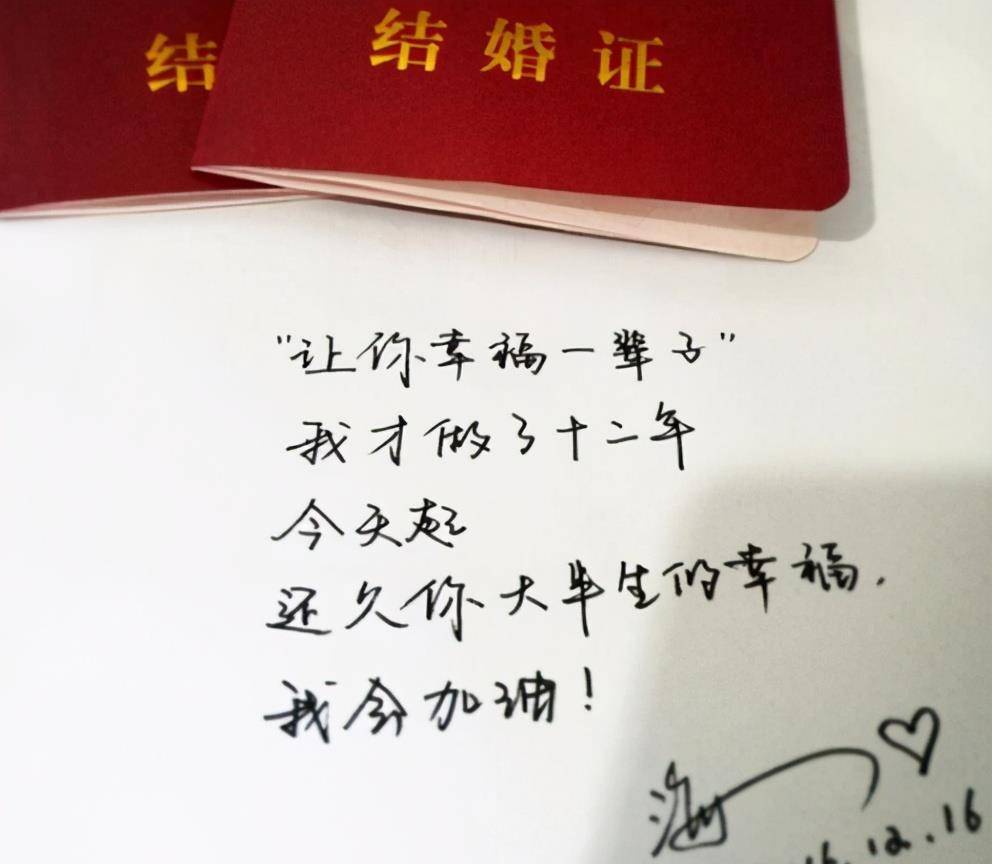 结
结婚证
"让你幸福一辈子"
我才做了十二年
今天起
还久你大半生的幸福.
我会加油!
海
16.12.16